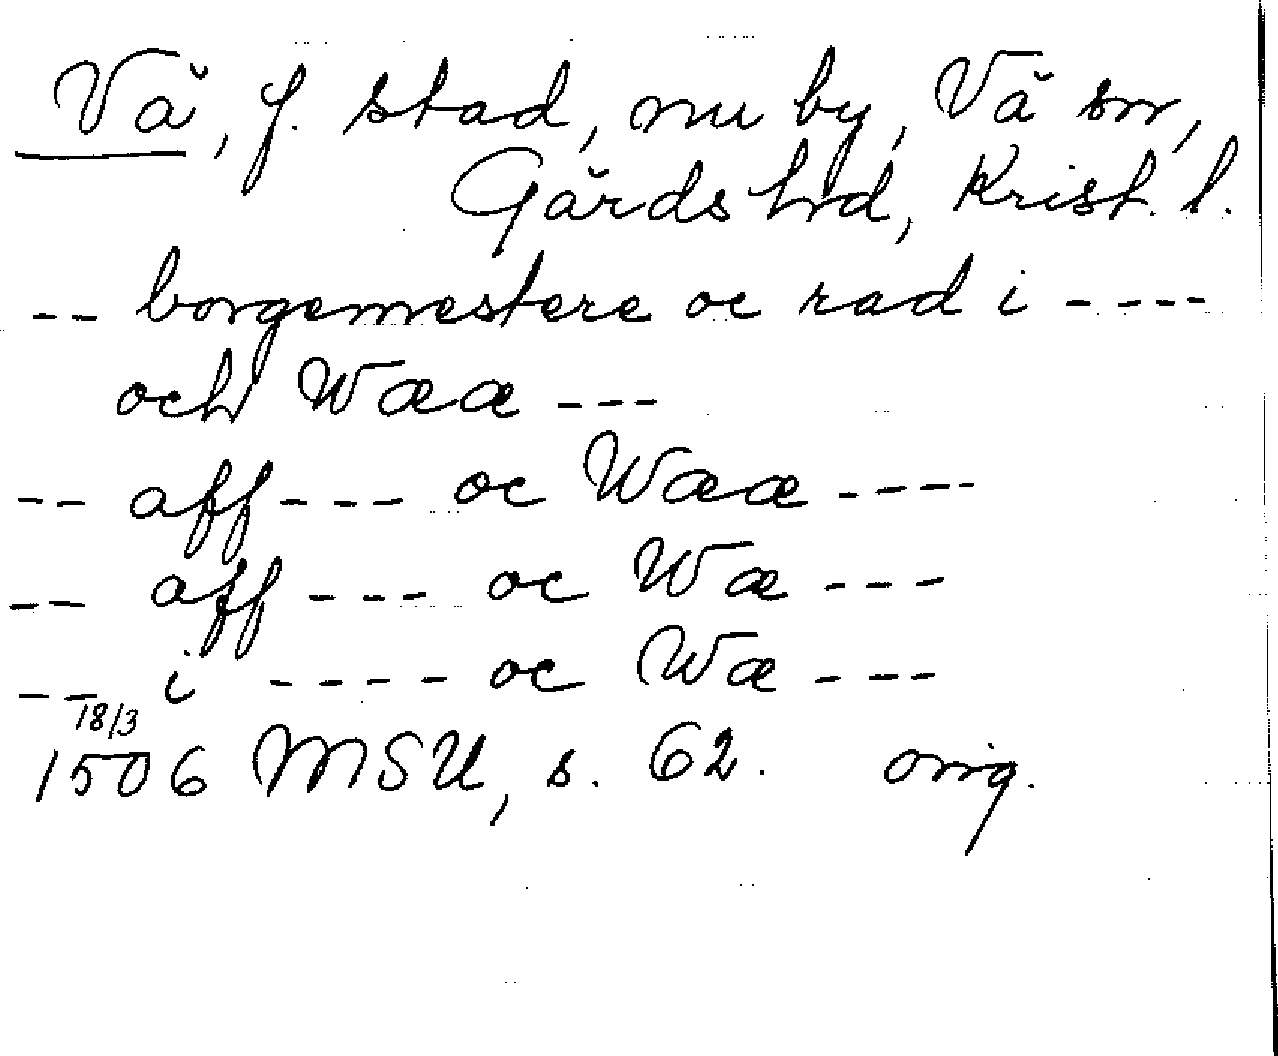 Vå, f. stad, nu by, Vå sn,
Gärds hd, Krist. l.
-- borgemestere oc rad i ----
och Wææ ---
-- aff --- oc Wææ ----
-- aff --- oc Wæ ---
-- i ---- oc Wæ ---
18/3
1506 MSU, s. 62. orig.